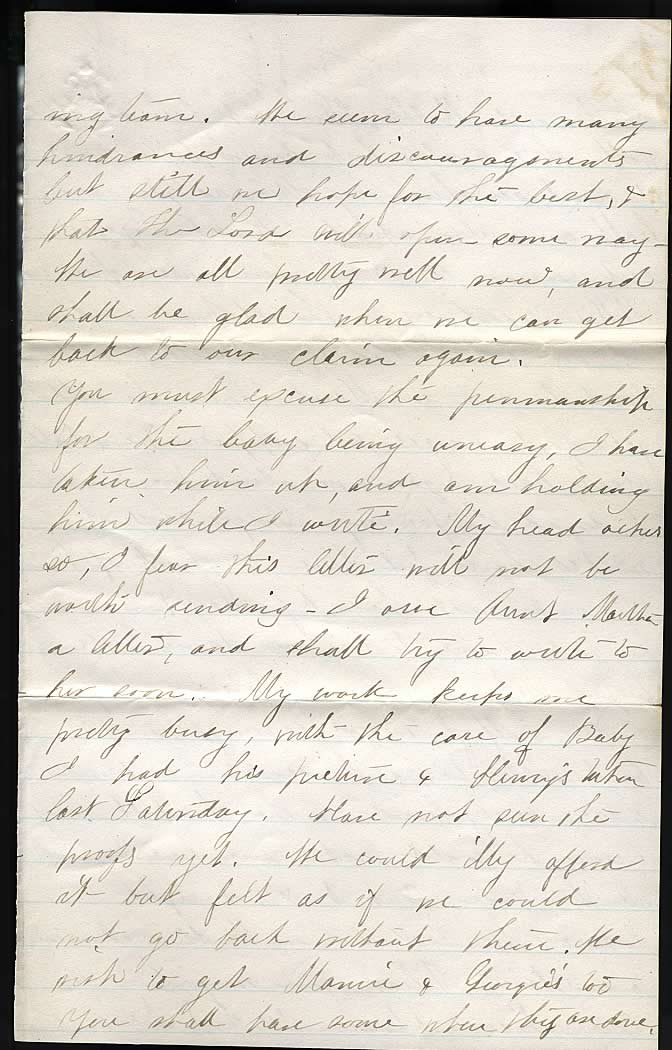 ing team. We seem to have many
hindrances and discouragements
but still we hope for the best, &
that the Lord will open some way -
We are all pretty well now, and
shall be glad when we can get
back to our claim again.
You must excuse the penmanship
for the baby being uneasy, I have
taken him up, and am holding
him while I write. My head aches
so, I fear this letter will not be
worth sending - I owe Aunt Martha
a letter, and shall try to write to
her soon. My work keeps me
pretty busy, with the care of Baby
I had his picture & Henry's taken
last Saturday. Have not seen the
proofs yet. We could illy afford
it but felt as if we could
not go back without them. We
wish to get Mamie & Georgie's too
You shall have some when they are done.